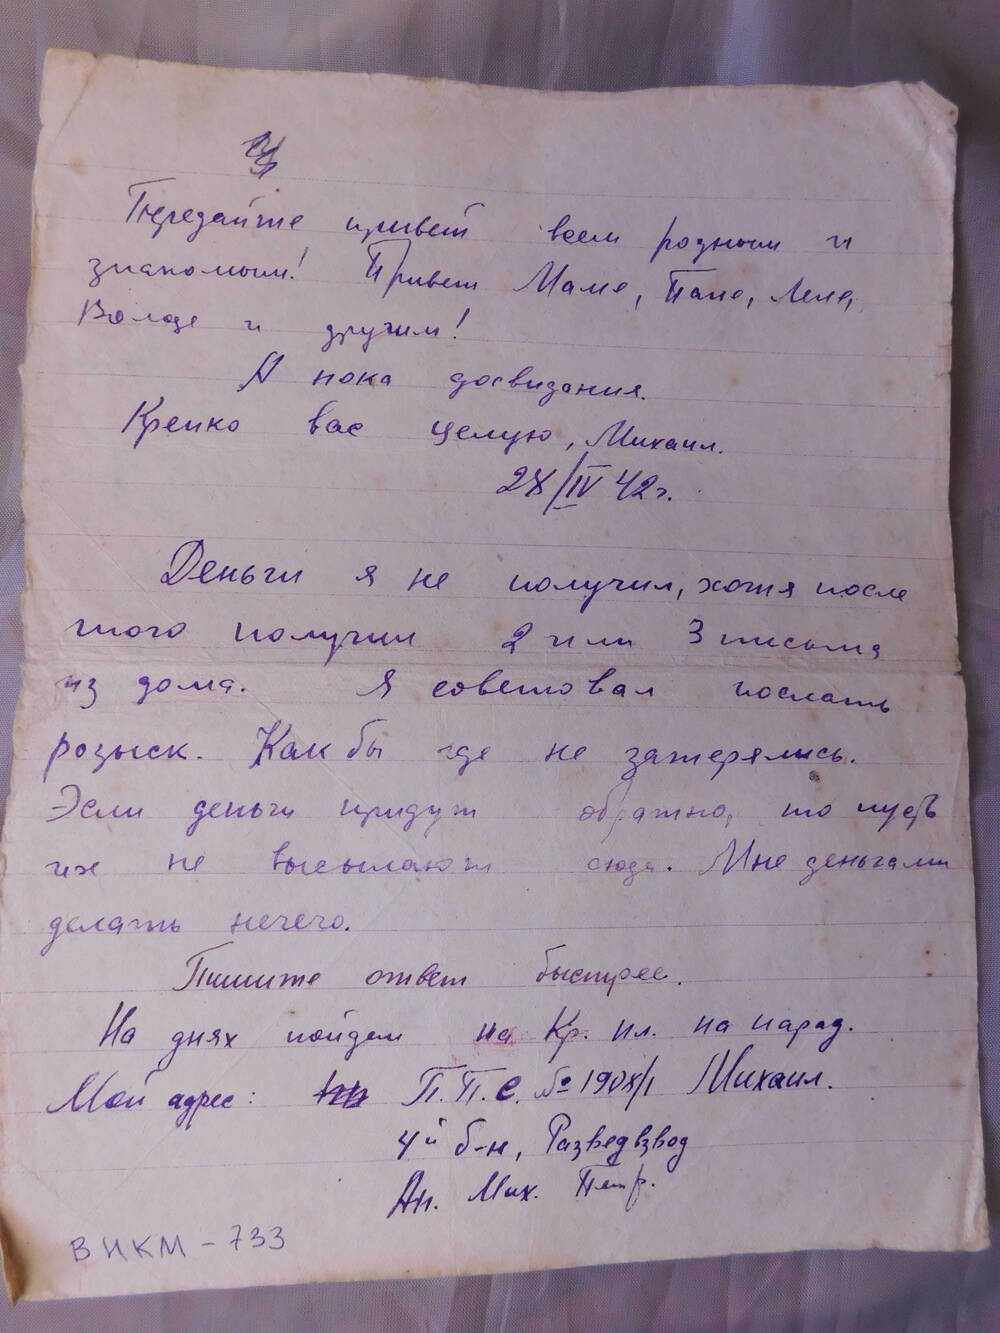 Передайте привет всем родным и
знакомым! Привет Маме, Папе, Лене,
Володе и другим!
А пока досвидания.
Крепко вас целую, Михаил.
28/IV 42г.
Деньги я не получил, хотя после
того получил 2 или 3 письма
из дома. Я советовал послать
розыск. Как бы где не затерялись.
Если деньги придут обратно, то пусть
их не высылают сюда. Мне деньгами
делать нечего.
Пишите ответ быстрее.
На днях пойдем на Кр. пл. на парад.
Мой адрес: П.П.С. № Михаил.
4й б-н, Разведвзвод
Ан. Мих. Петр.
ВИКМ - 733